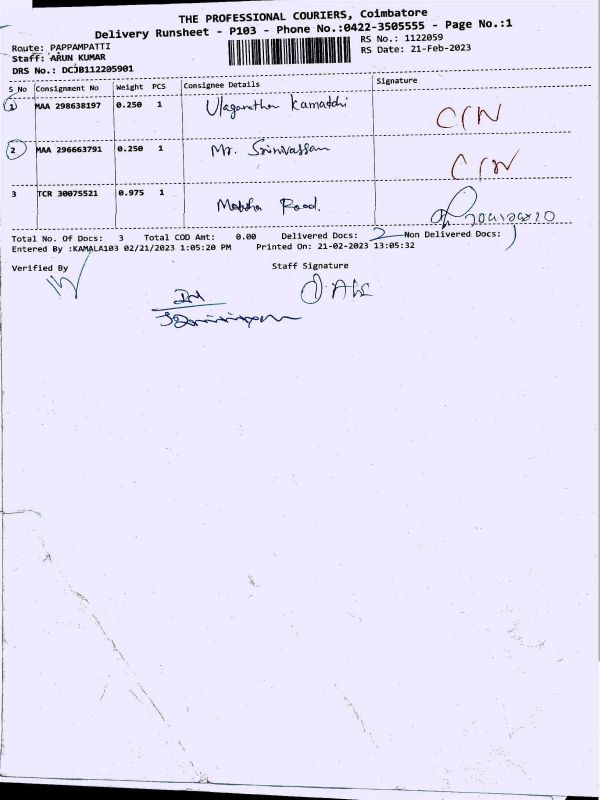 THE PROFESSIONAL COURIERS, Coimbatore
Delivery Runsheet - P103 - Phone No.:0422-3505555 - Page No.:1
Route: PAPPAMPATTI
RS No.: 1122059
Staff: ARUN KUMAR
RS Date: 21-Feb-2023
DRS No.: DCJB112205901
S_No Consignment No Weight PCS Consignee Details Signature
1 MAA 298638197 0.250 1 Ulaganathan Kamatchi
2 MAA 296663791 0.250 1 Mr. Srinivassan
3 TCR 30075521 0.975 1 Road.
Total No. Of Docs: 3 Total COD Amt: 0.00 Delivered Docs: 2 Non Delivered Docs: 1
Entered By :KAMALA103 02/21/2023 1:05:20 PM Printed On: 21-02-2023 13:05:32
Verified By Staff Signature